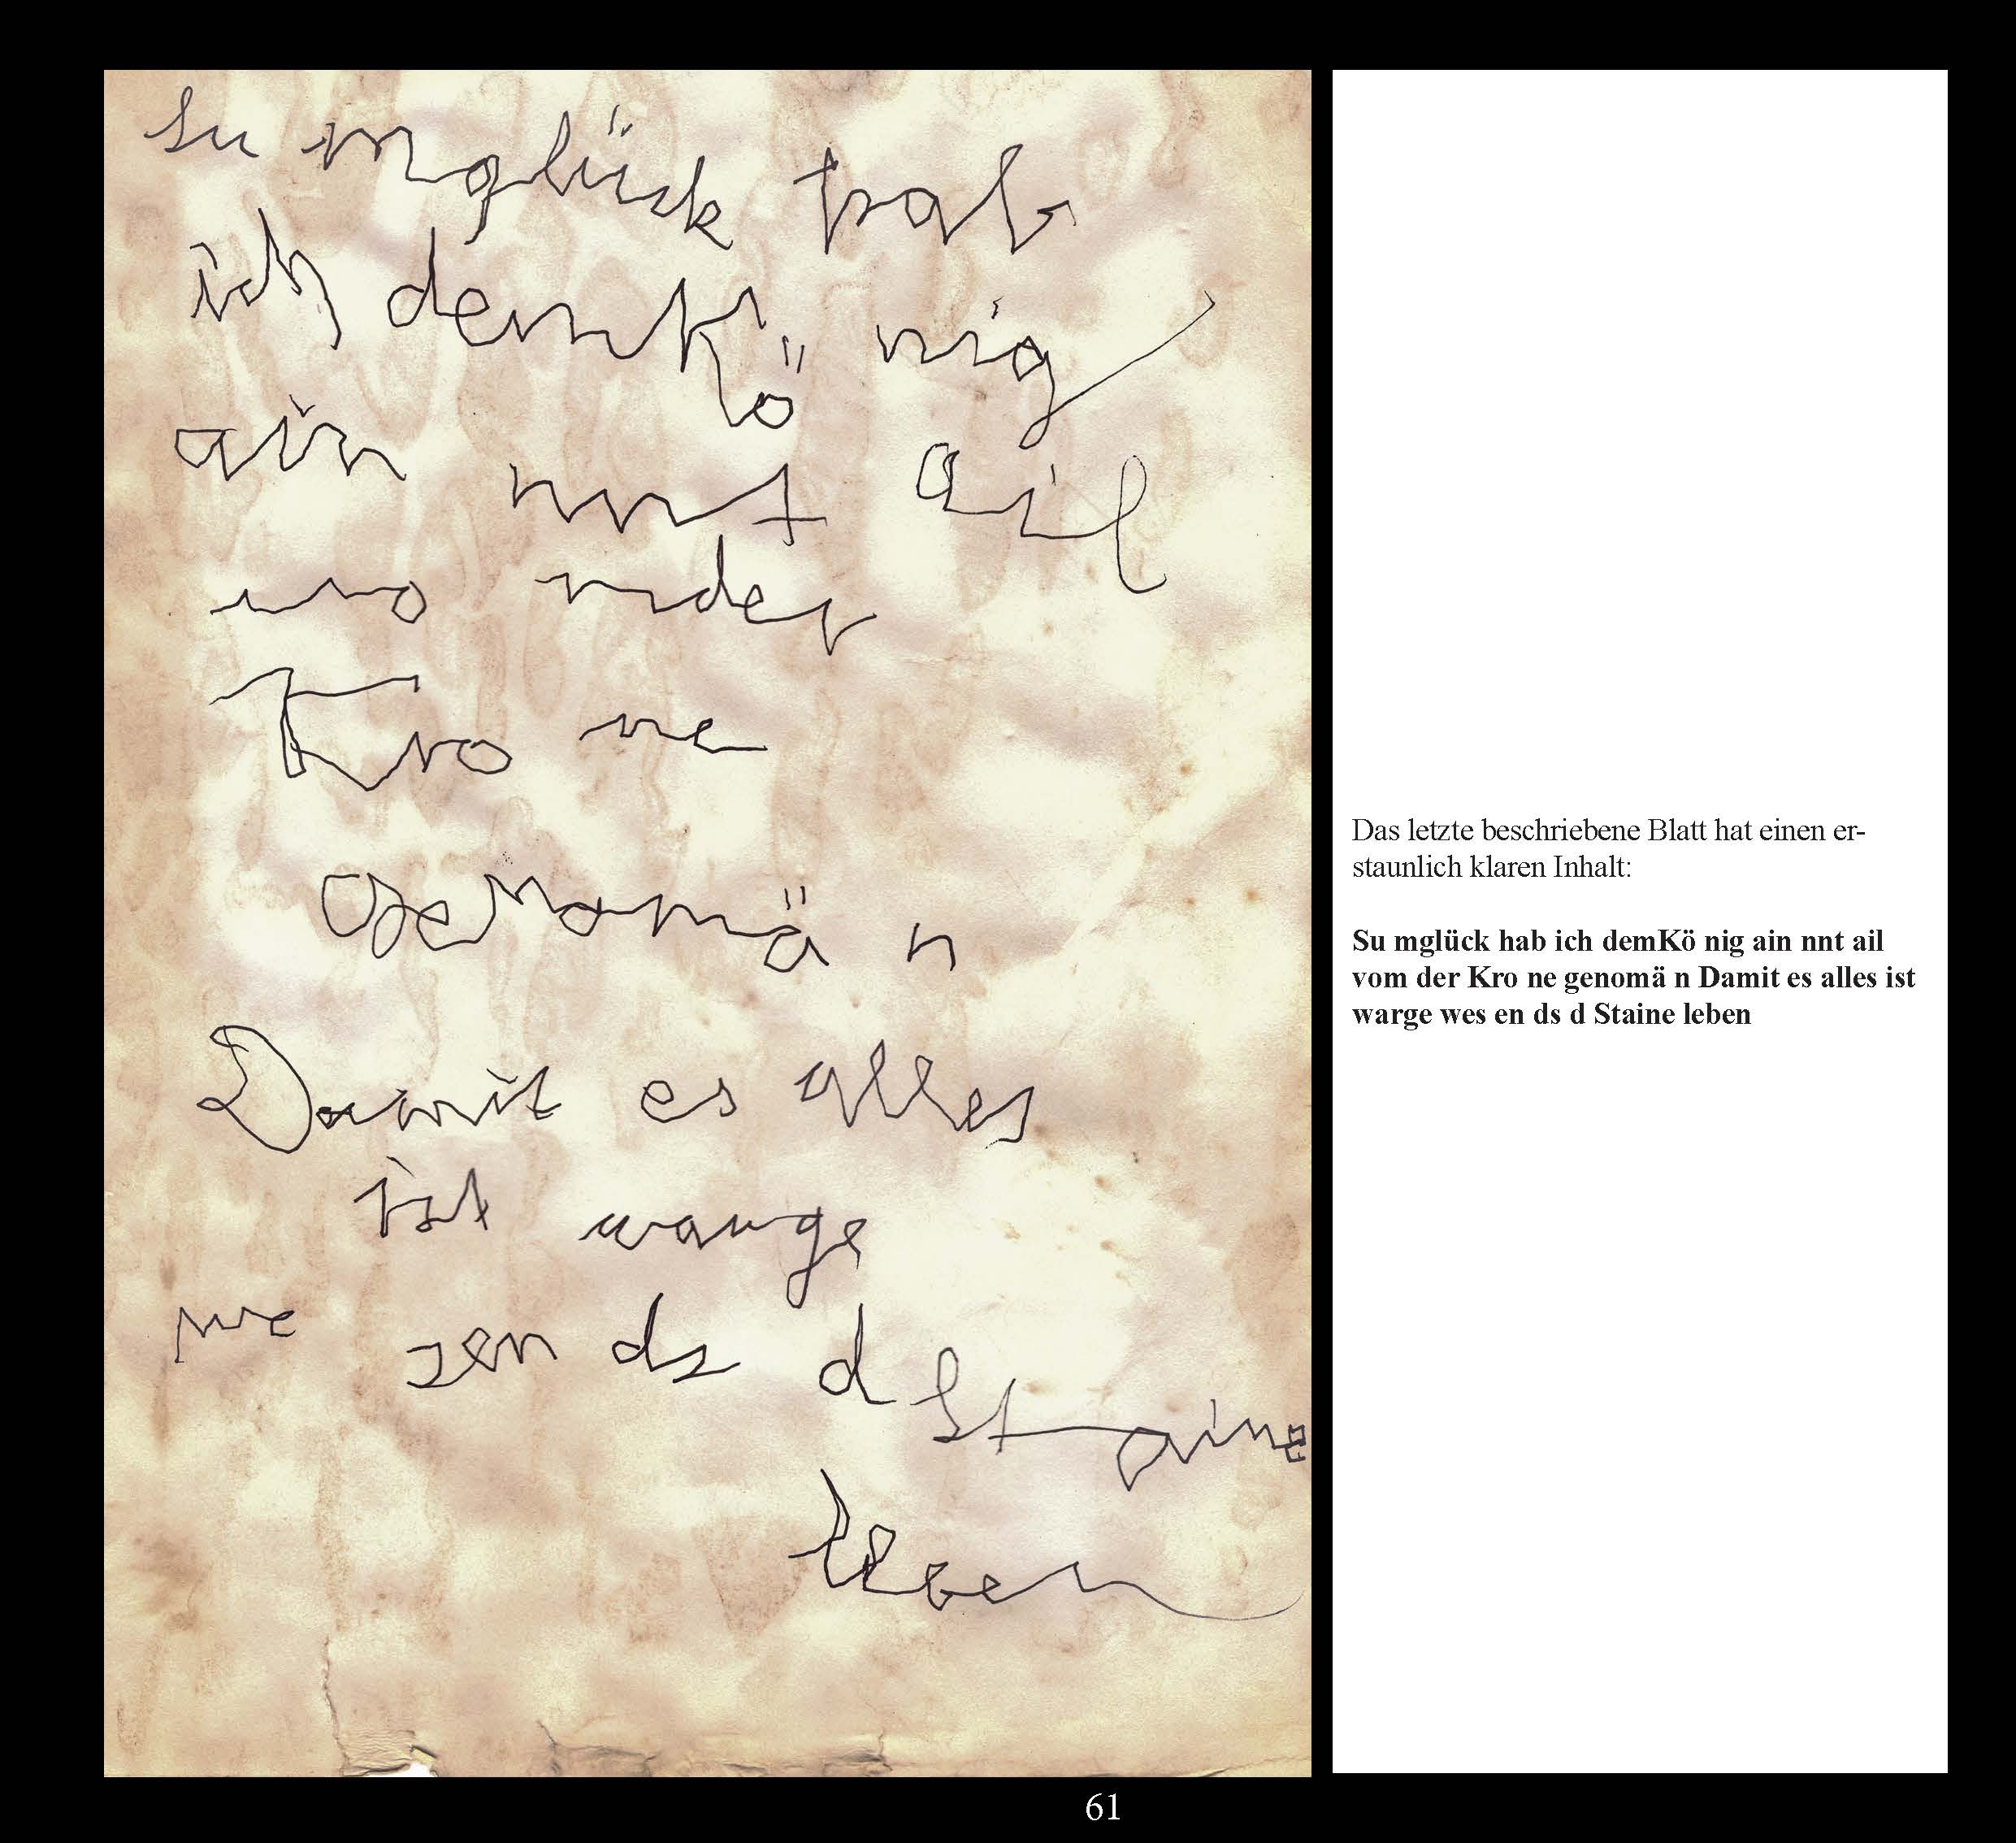 Su mglück hab
ich demKö nig
ain nnt ail
vo nder
Kro ne
genomä n
Damit es alles
ist warge
we sen ds d Staine
leben
Das letzte beschriebene Blatt hat einen er-
staunlich klaren Inhalt:
Su mglück hab ich demKö nig ain nnt ail
vom der Kro ne genomä n Damit es alles ist
warge wes en ds d Staine leben
61